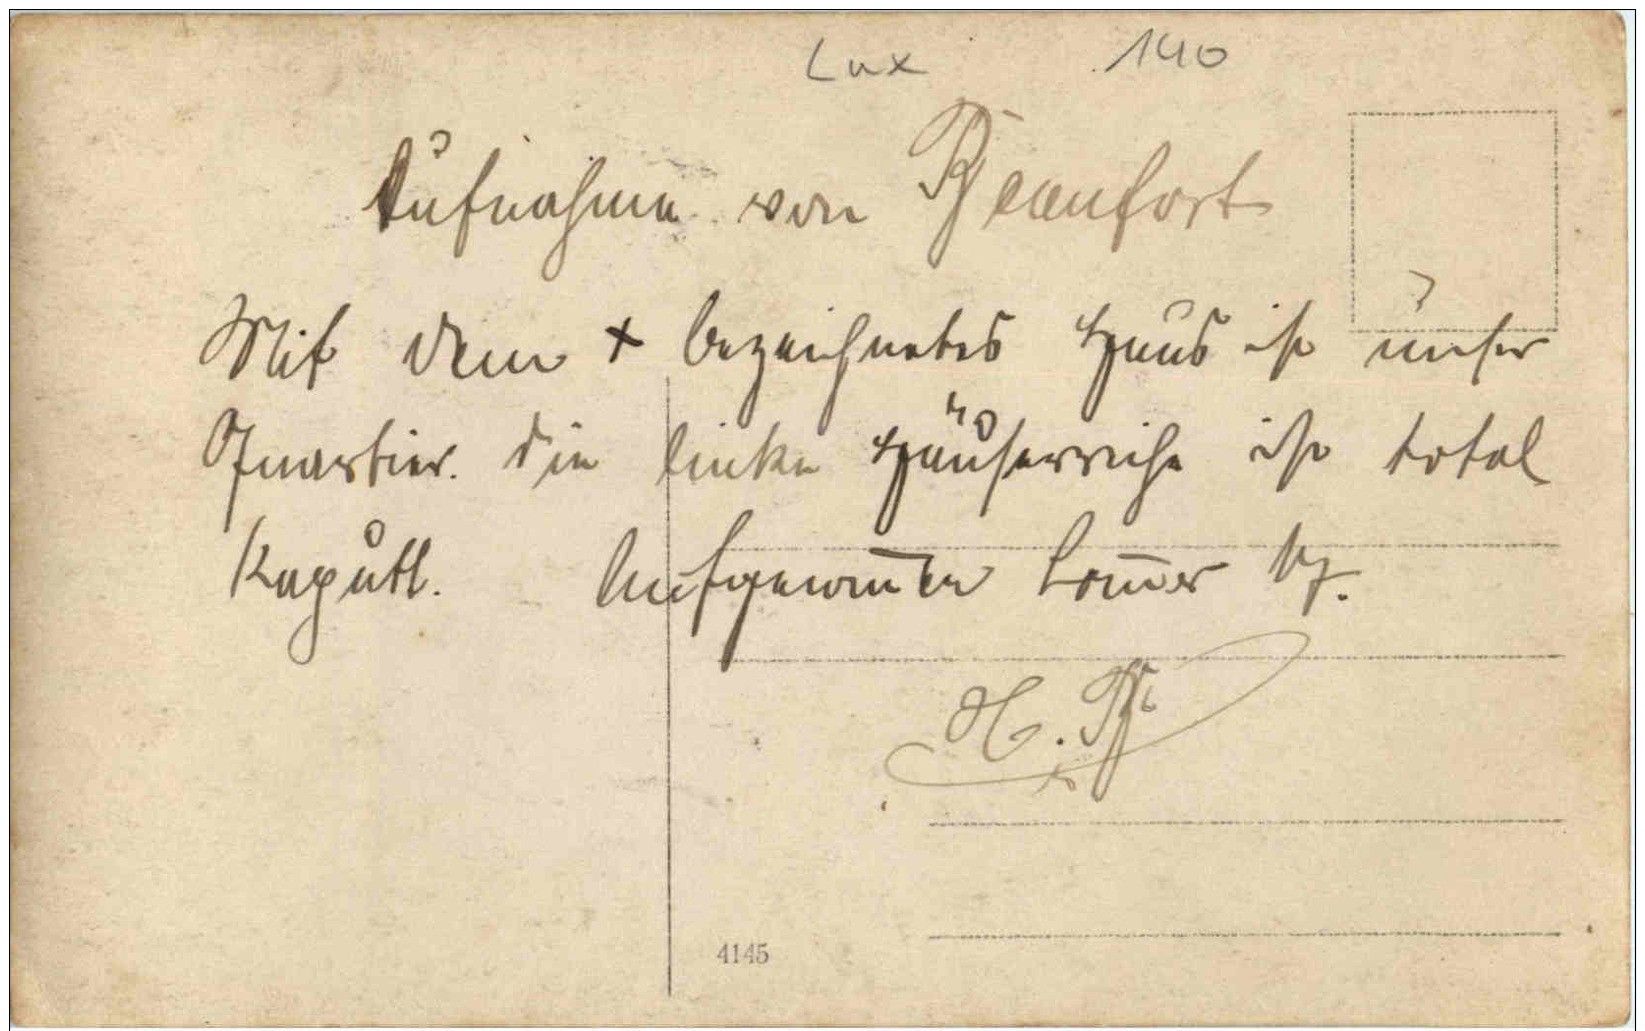 Lux 140
Aufnahme von Beaufort
Mit dem + bezeichnetes Haus ist unser
Quartier. Die linke Häuserreihe ist total
Kaputt. Aufgenom̄en
H. B.
4145